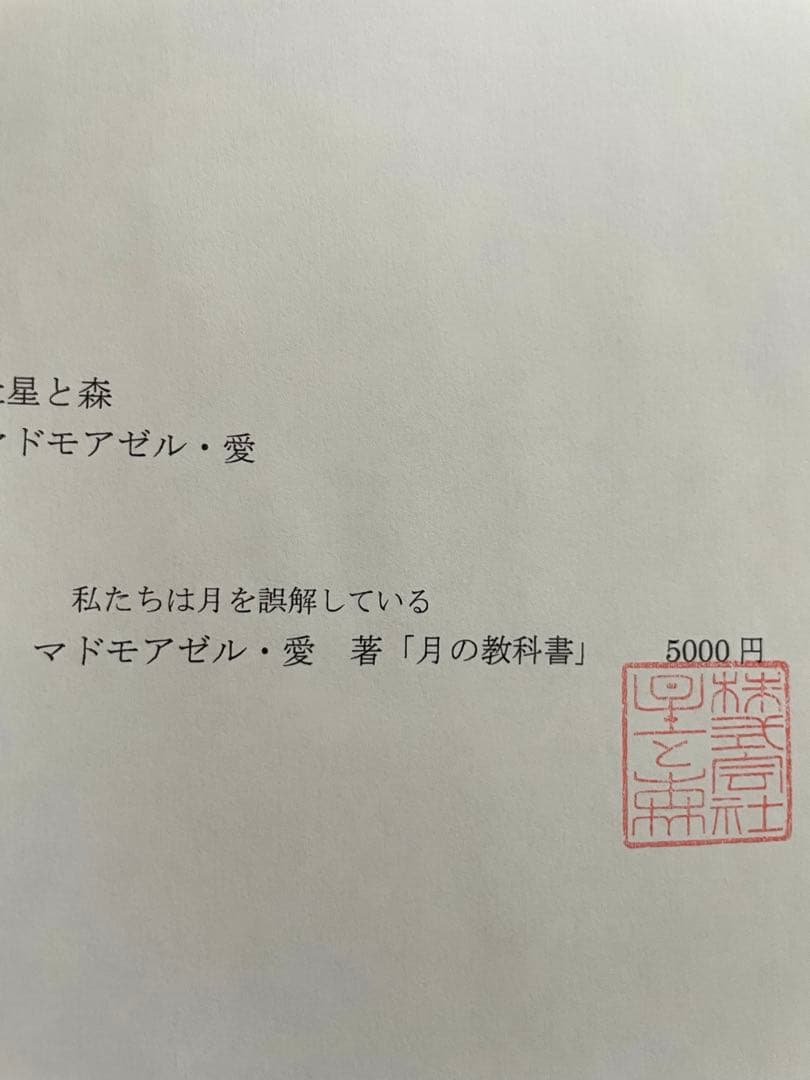 星と森
ドモアゼル・愛
私たちは月を誤解している
マドモアゼル・愛　著「月の教科書」　5000円
株式会社
星と森